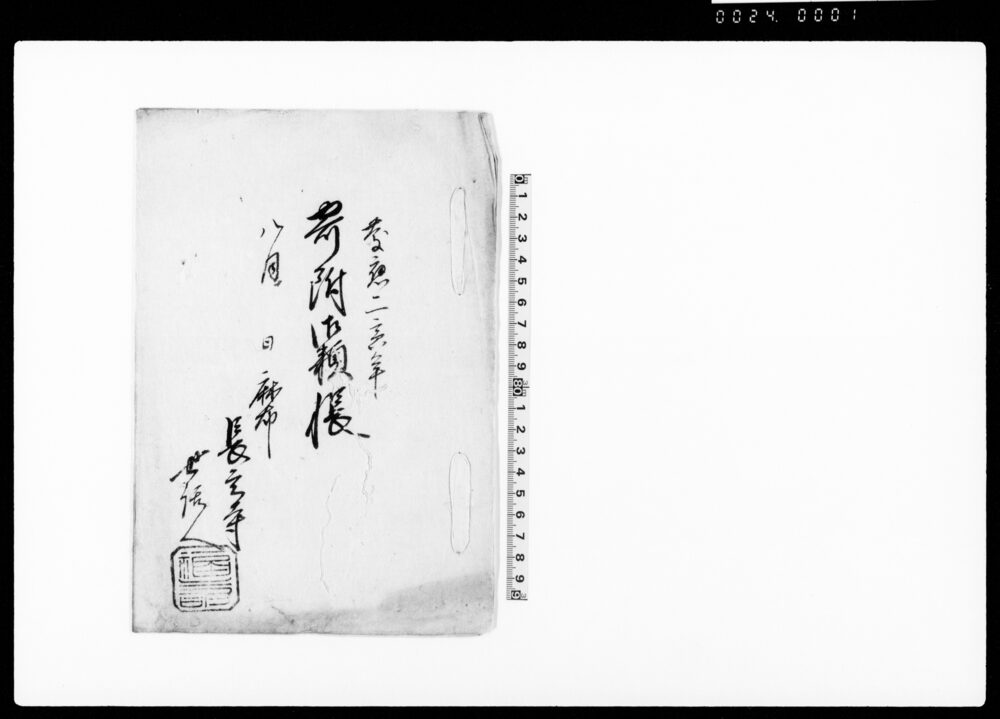 0024. 0001
慶應二寅年
寄附御頼帳
八月　日
麻布
長玄寺
世話人
0 1 2 3 4 5 6 7 8 9 1 2 3 4 5 6 7 8 9